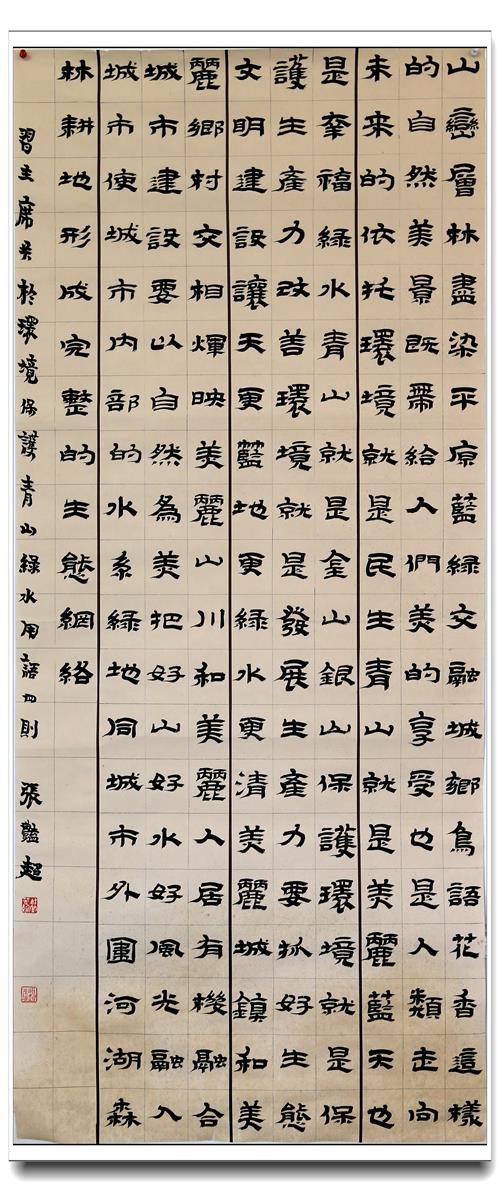 山巒層林盡染平原藍綠交融城鄉鳥語花香這樣
的自然美景既帶給人們美的享受也是人類走向
未來的依托環境就是民生青山就是美麗藍天也
是幸福綠水青山就是金山銀山保護環境就是保
護生產力改善環境就是發展生產力要抓好生態
文明建設讓天更藍地更綠水更清美麗城鎮和美
麗鄉村交相煇映美麗山川和美麗人居有機融合
城市建設要以自然為美把好山好水好風光融入
城市使城市內部的水系綠地同城市外圍河湖森
林耕地形成完整的生態網絡
習主席关於環境保護青山綠水用語四則 張超